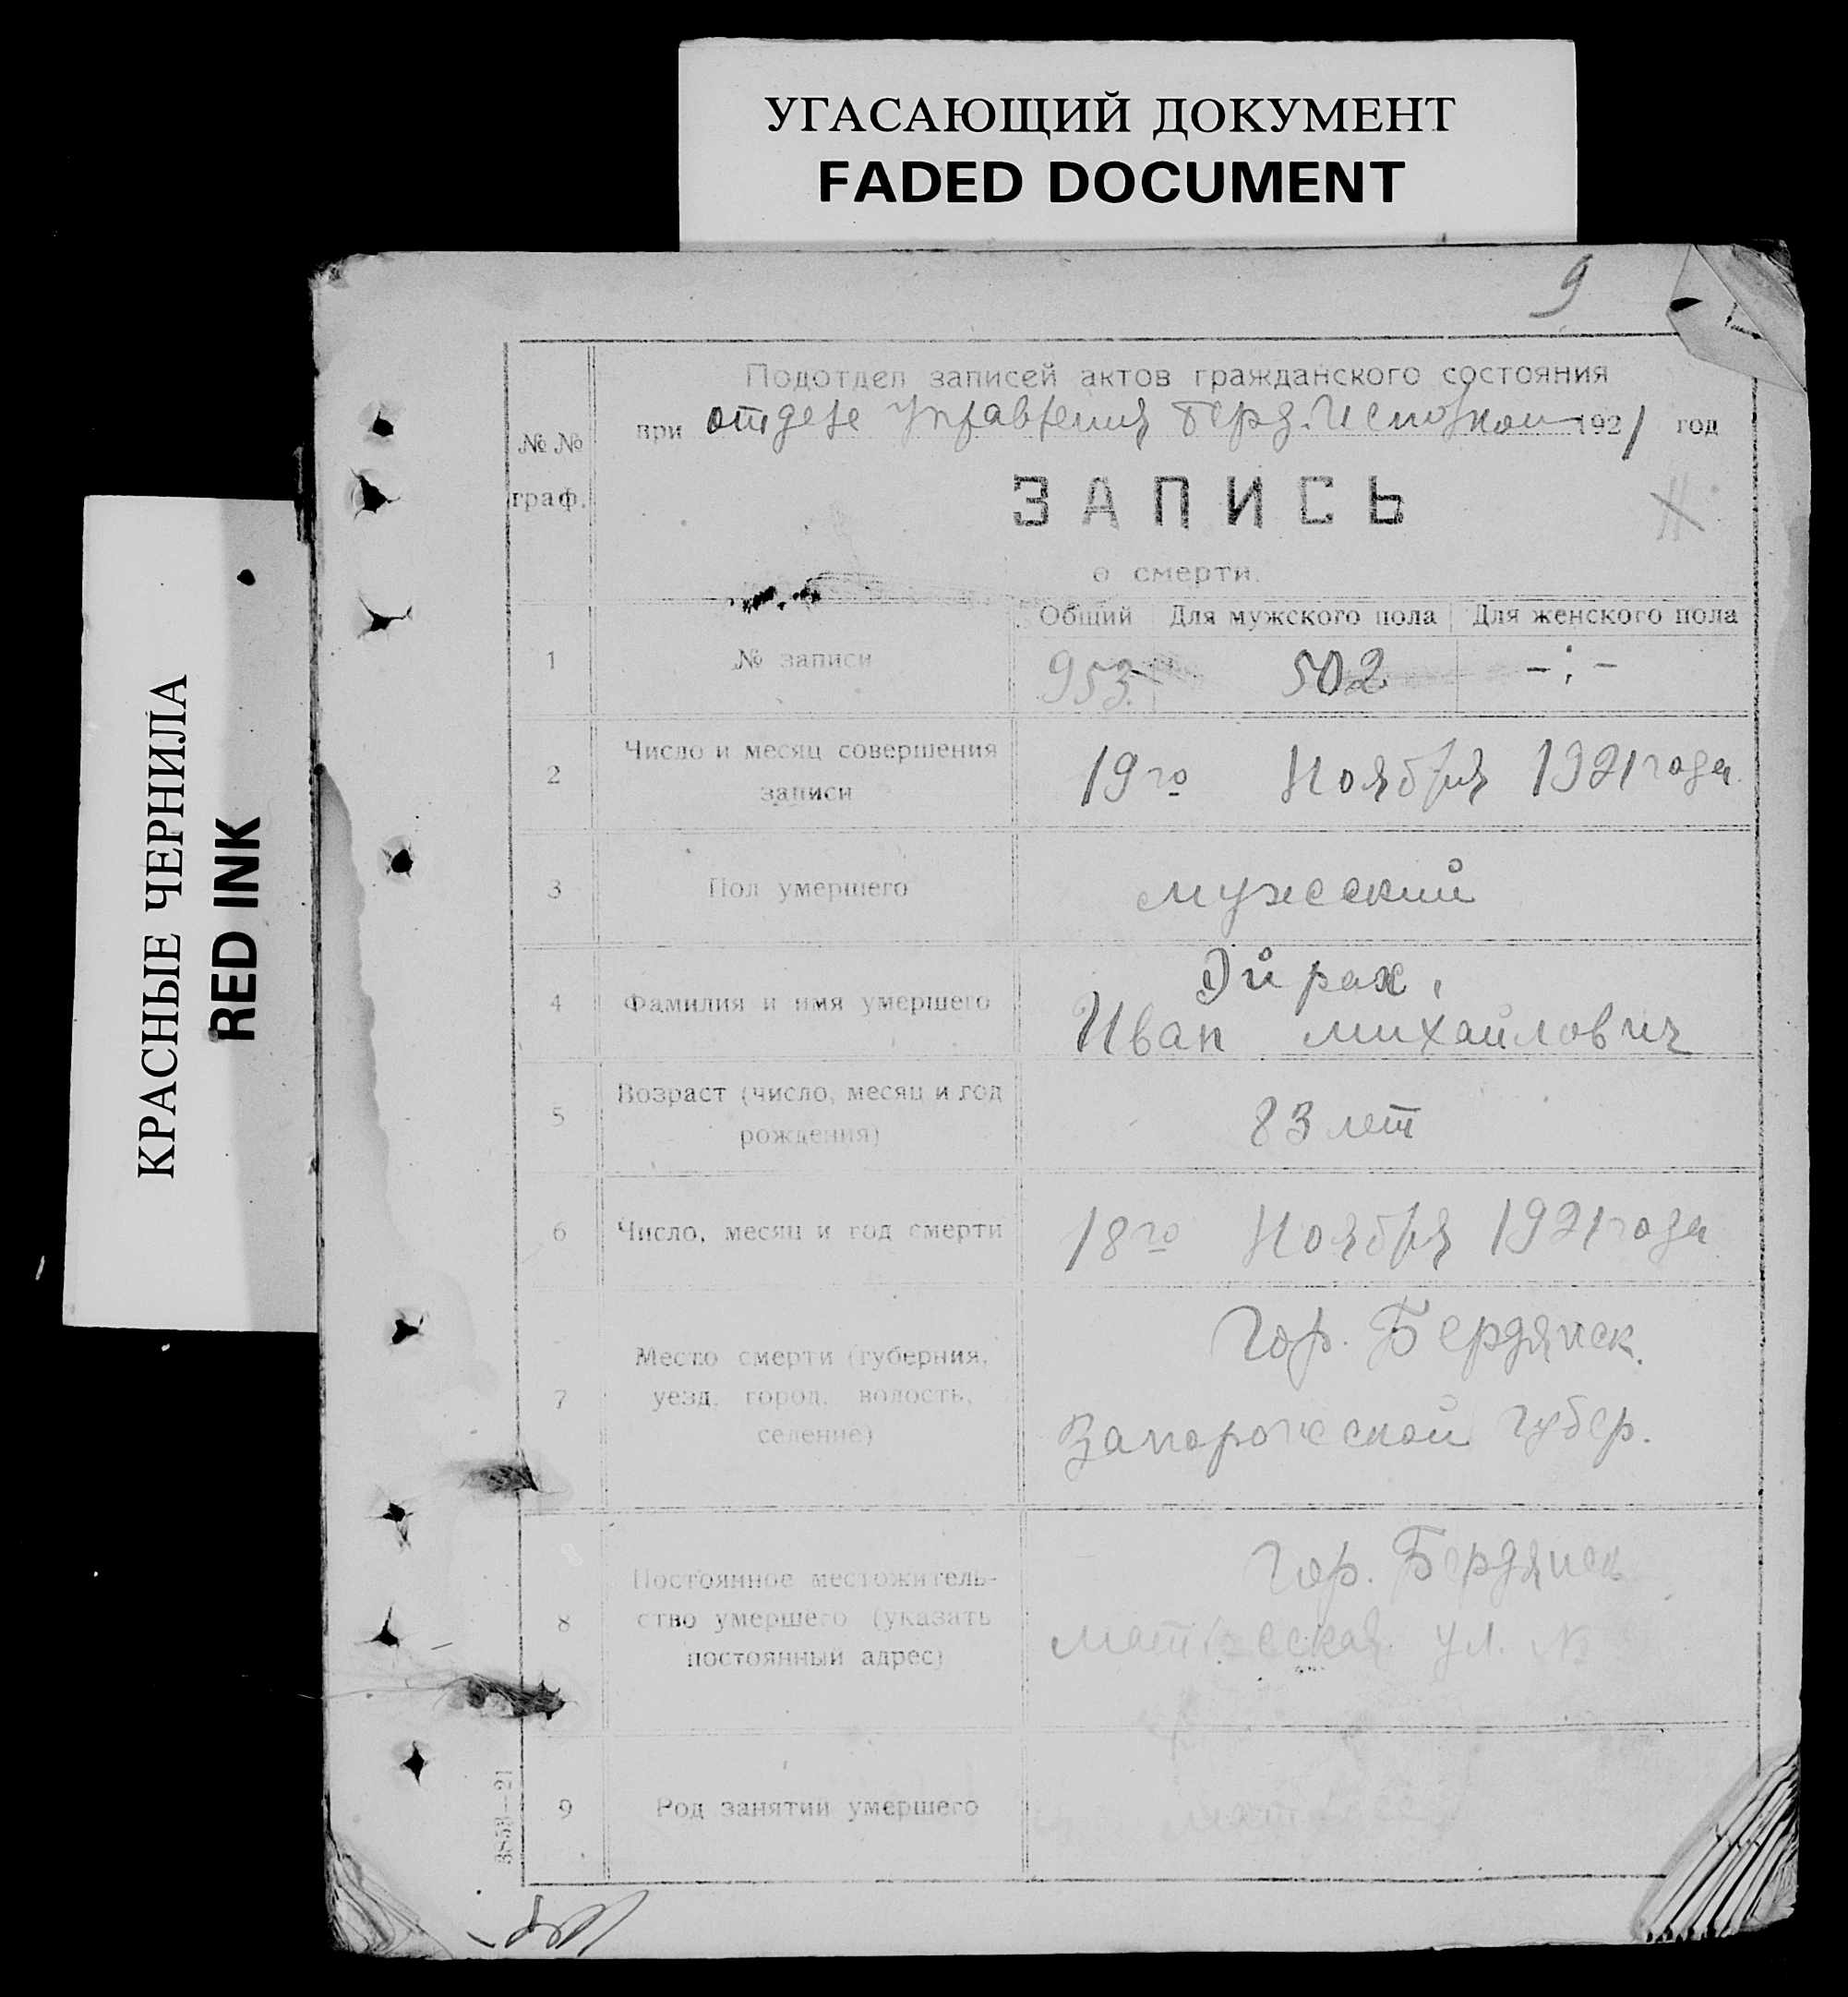 УГАСАЮЩИЙ ДОКУМЕНТ
FADED DOCUMENT
КРАСНЫЕ ЧЕРНИЛА
RED INK
9
№ № граф.
Подотдел записей актов гражданского состояния
при отделе Управления Берд. Исполком 1921 год
ЗАПИСЬ
о смерти.
Общий Для мужского пола Для женского пола
1 № записи 953 502 -:-
2 Число и месяц совершения
записи
19го Ноября 1921 года
3 Пол умершего мужеский
4 Фамилия и имя умершего
Эйрах,
Иван Михайлович
5 Возраст (число, месяц и год
рождения)
83 лет
6 Число, месяц и год смерти 18го Ноября 1921 года
7 Место смерти (губерния,
уезд, город, волость,
селение)
Гор. Бердянск.
Запорожеской Губер.
8 Постоянное местожитель-
ство умершего (указать
постоянный адрес)
Гор. Бердянск
ул. №
9 Род занятий умершего
3853—21